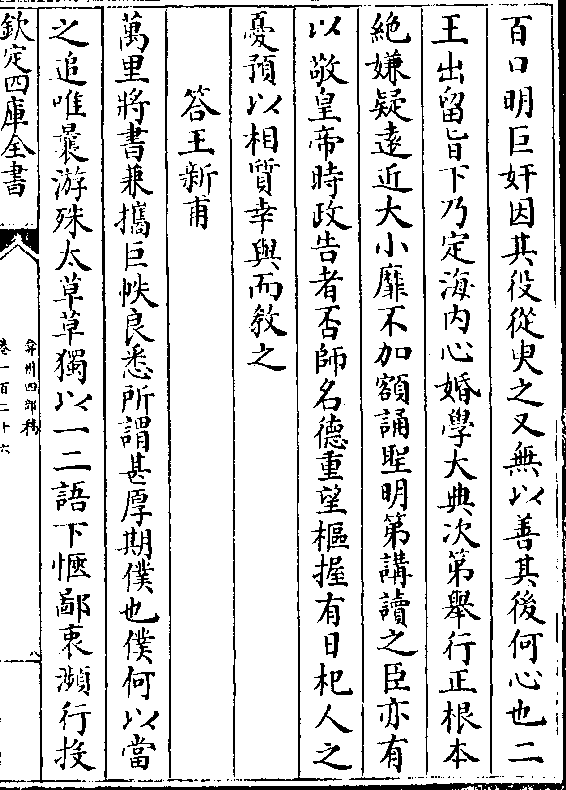 百口明巨奸因其役從臾之又無以善其後何心也二
王出留旨下乃定海内心婚學大典次第舉行正根本
絶嫌疑遠近大小靡不加額誦聖明第講讀之臣亦有
以敬皇帝時政告者否師名德重望樞握有日杞人之
憂預以相質幸與而教之
答王新甫
萬里將書兼攜巨帙良悉所謂甚厚期僕也僕何以當
之追唯曩游殊太草草獨以一二語下愜鄙衷瀕行投
欽定四庫全書
弇州四部稿
卷一百二十六
八